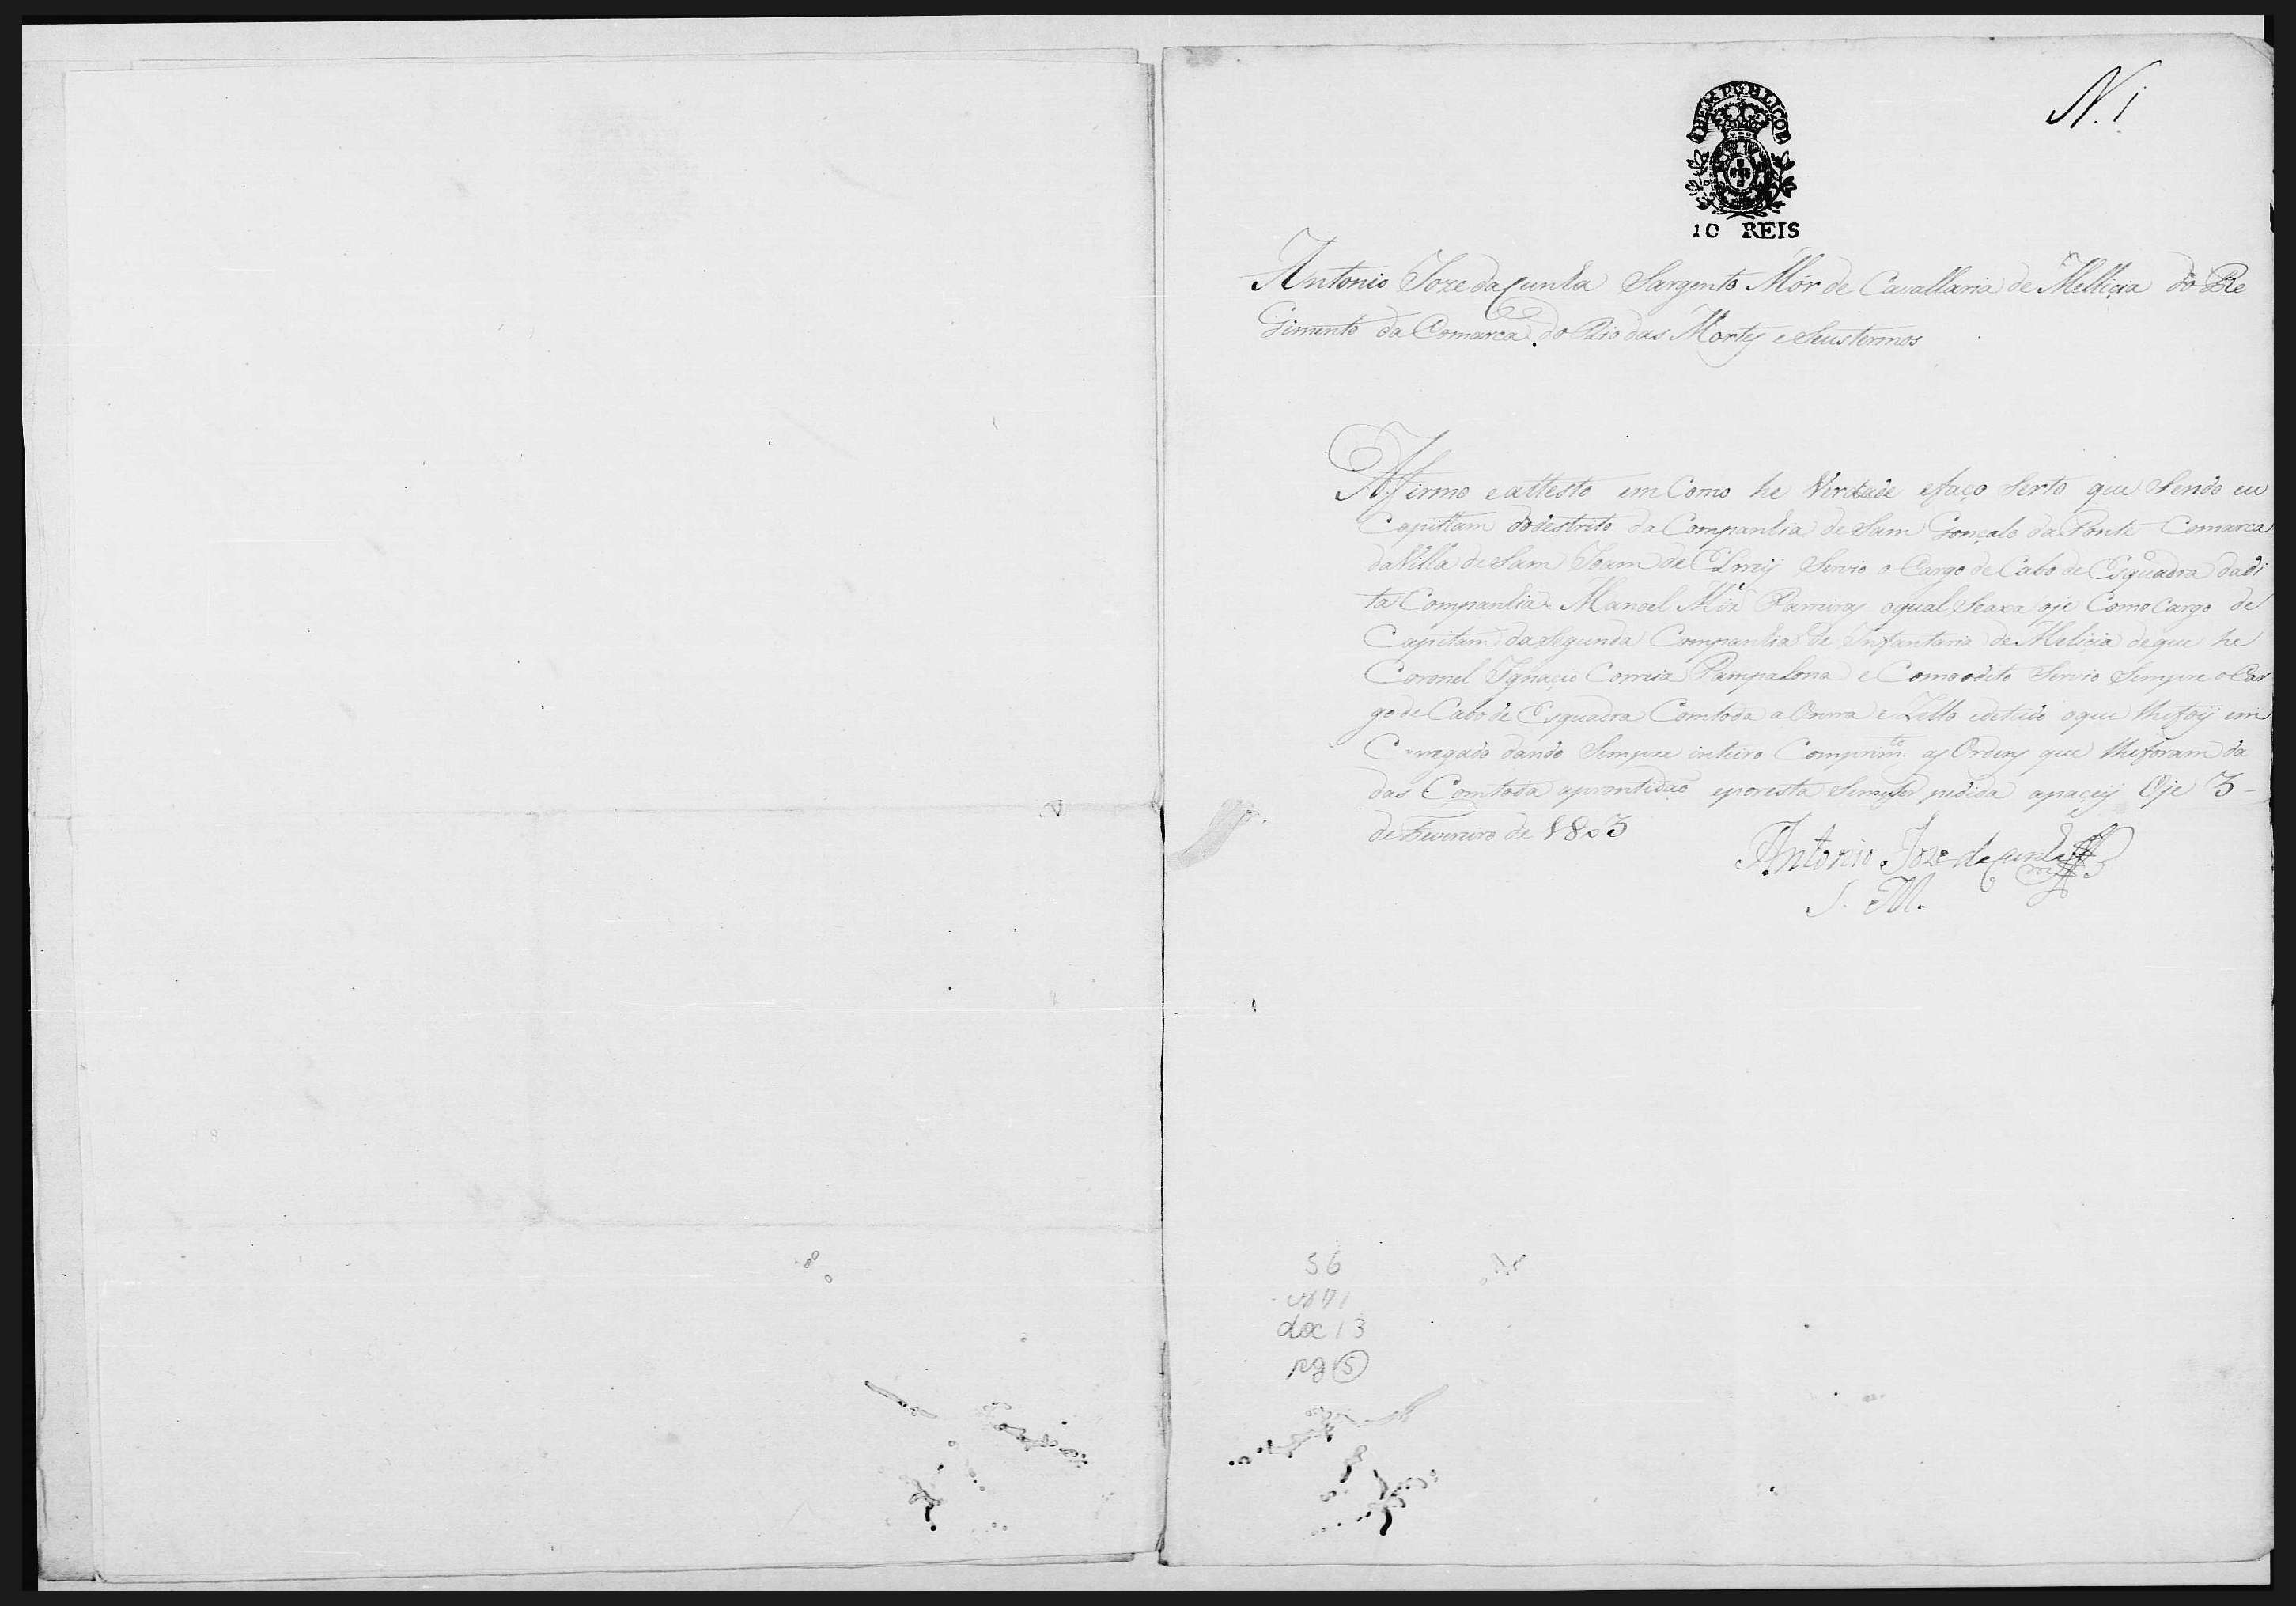 N. 1
IHER PUBLICO
10 REIS
Antonio Joze da Cunha Sargento Mór de Cavallaria de Mellicia do Re
Gimento da Comarca do Rio das Mortes e Seus termos
Affirmo e attesto em Como he Verdade e faço Serto que Sendo eu
Capittam do destrito da Companhia de Sam Gonçalo da Ponte Comarca
da Villa de Sam Joam de ELRey Servio o Cargo de Cabo de Esquadra da di
ta Companhia Manoel Miz Ramires o qual Se axa oje Como Cargo de
Capitam da Segunda Companhia de Infantaria de Melicia de que he
Coronel Ignacio Correia Pampalona e Como o dito Servio Sempre o Car
go de Cabo de Esquadra Com toda a Onrra e Zello e de tudo o que lhe foy em
Carregado dando Sempre inteiro Comprim.to as Ordens que lhe foram da
das Com toda a prontidão e por esta Sempre Ser pedida a pacey Oje 3
de Fevereiro de 1803
Antonio Joze da Cunha
S. M.
56
doc 13
pg 5